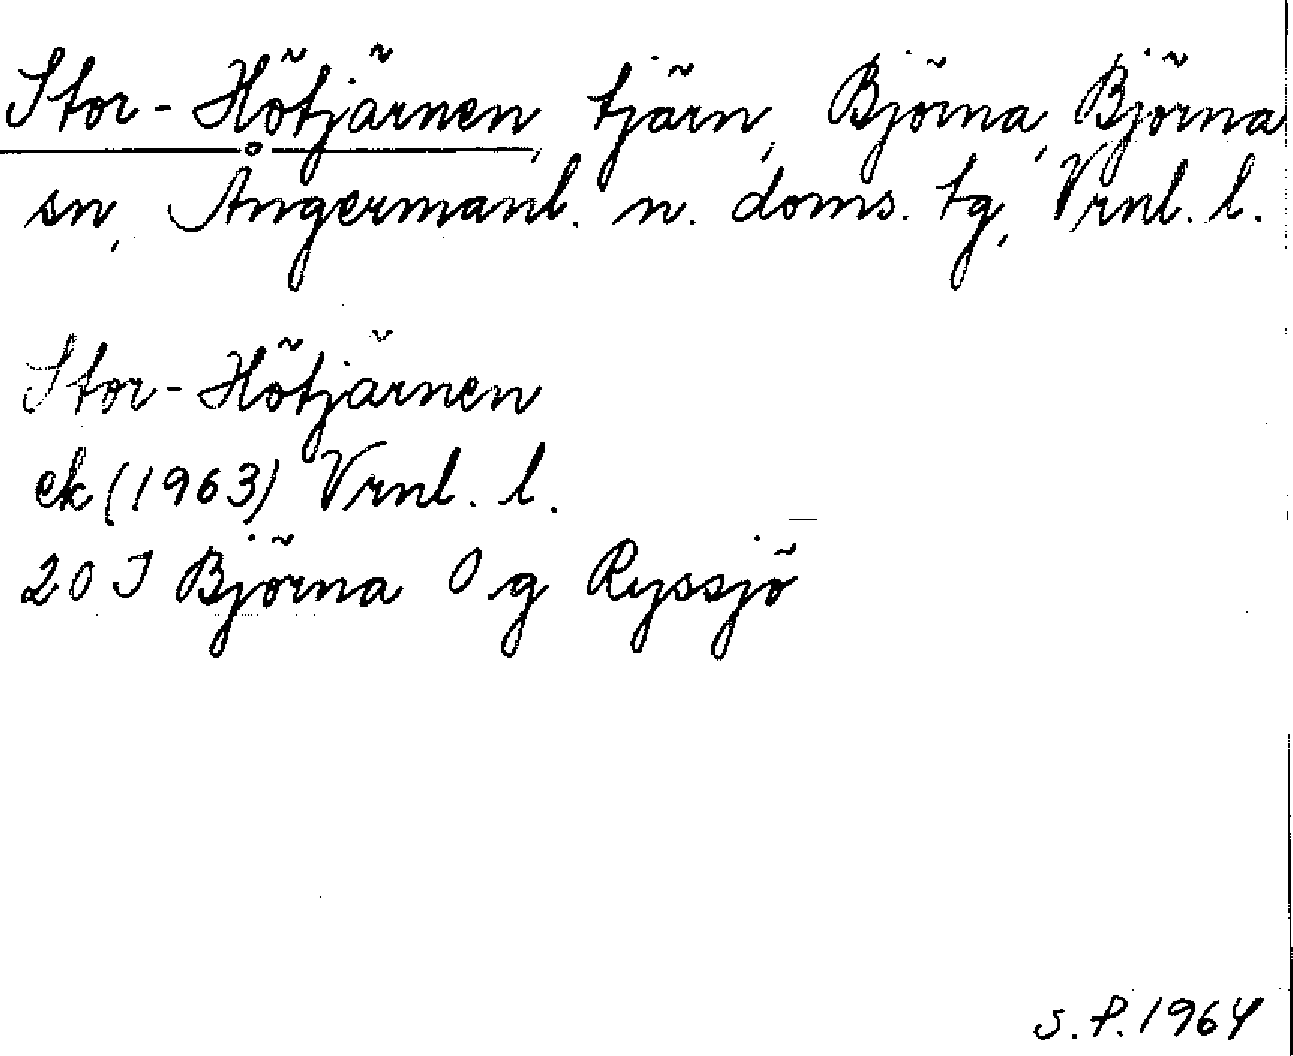 Stor-Hötjärnen, tjärn, Björna, Björna
sn, Ångermanl. n. doms. tg, Vrnl. l.
Stor-Hötjärnen
ek (1963) Vrnl. l.
20 J Björna 0 g Ryssjö
S.P. 1964